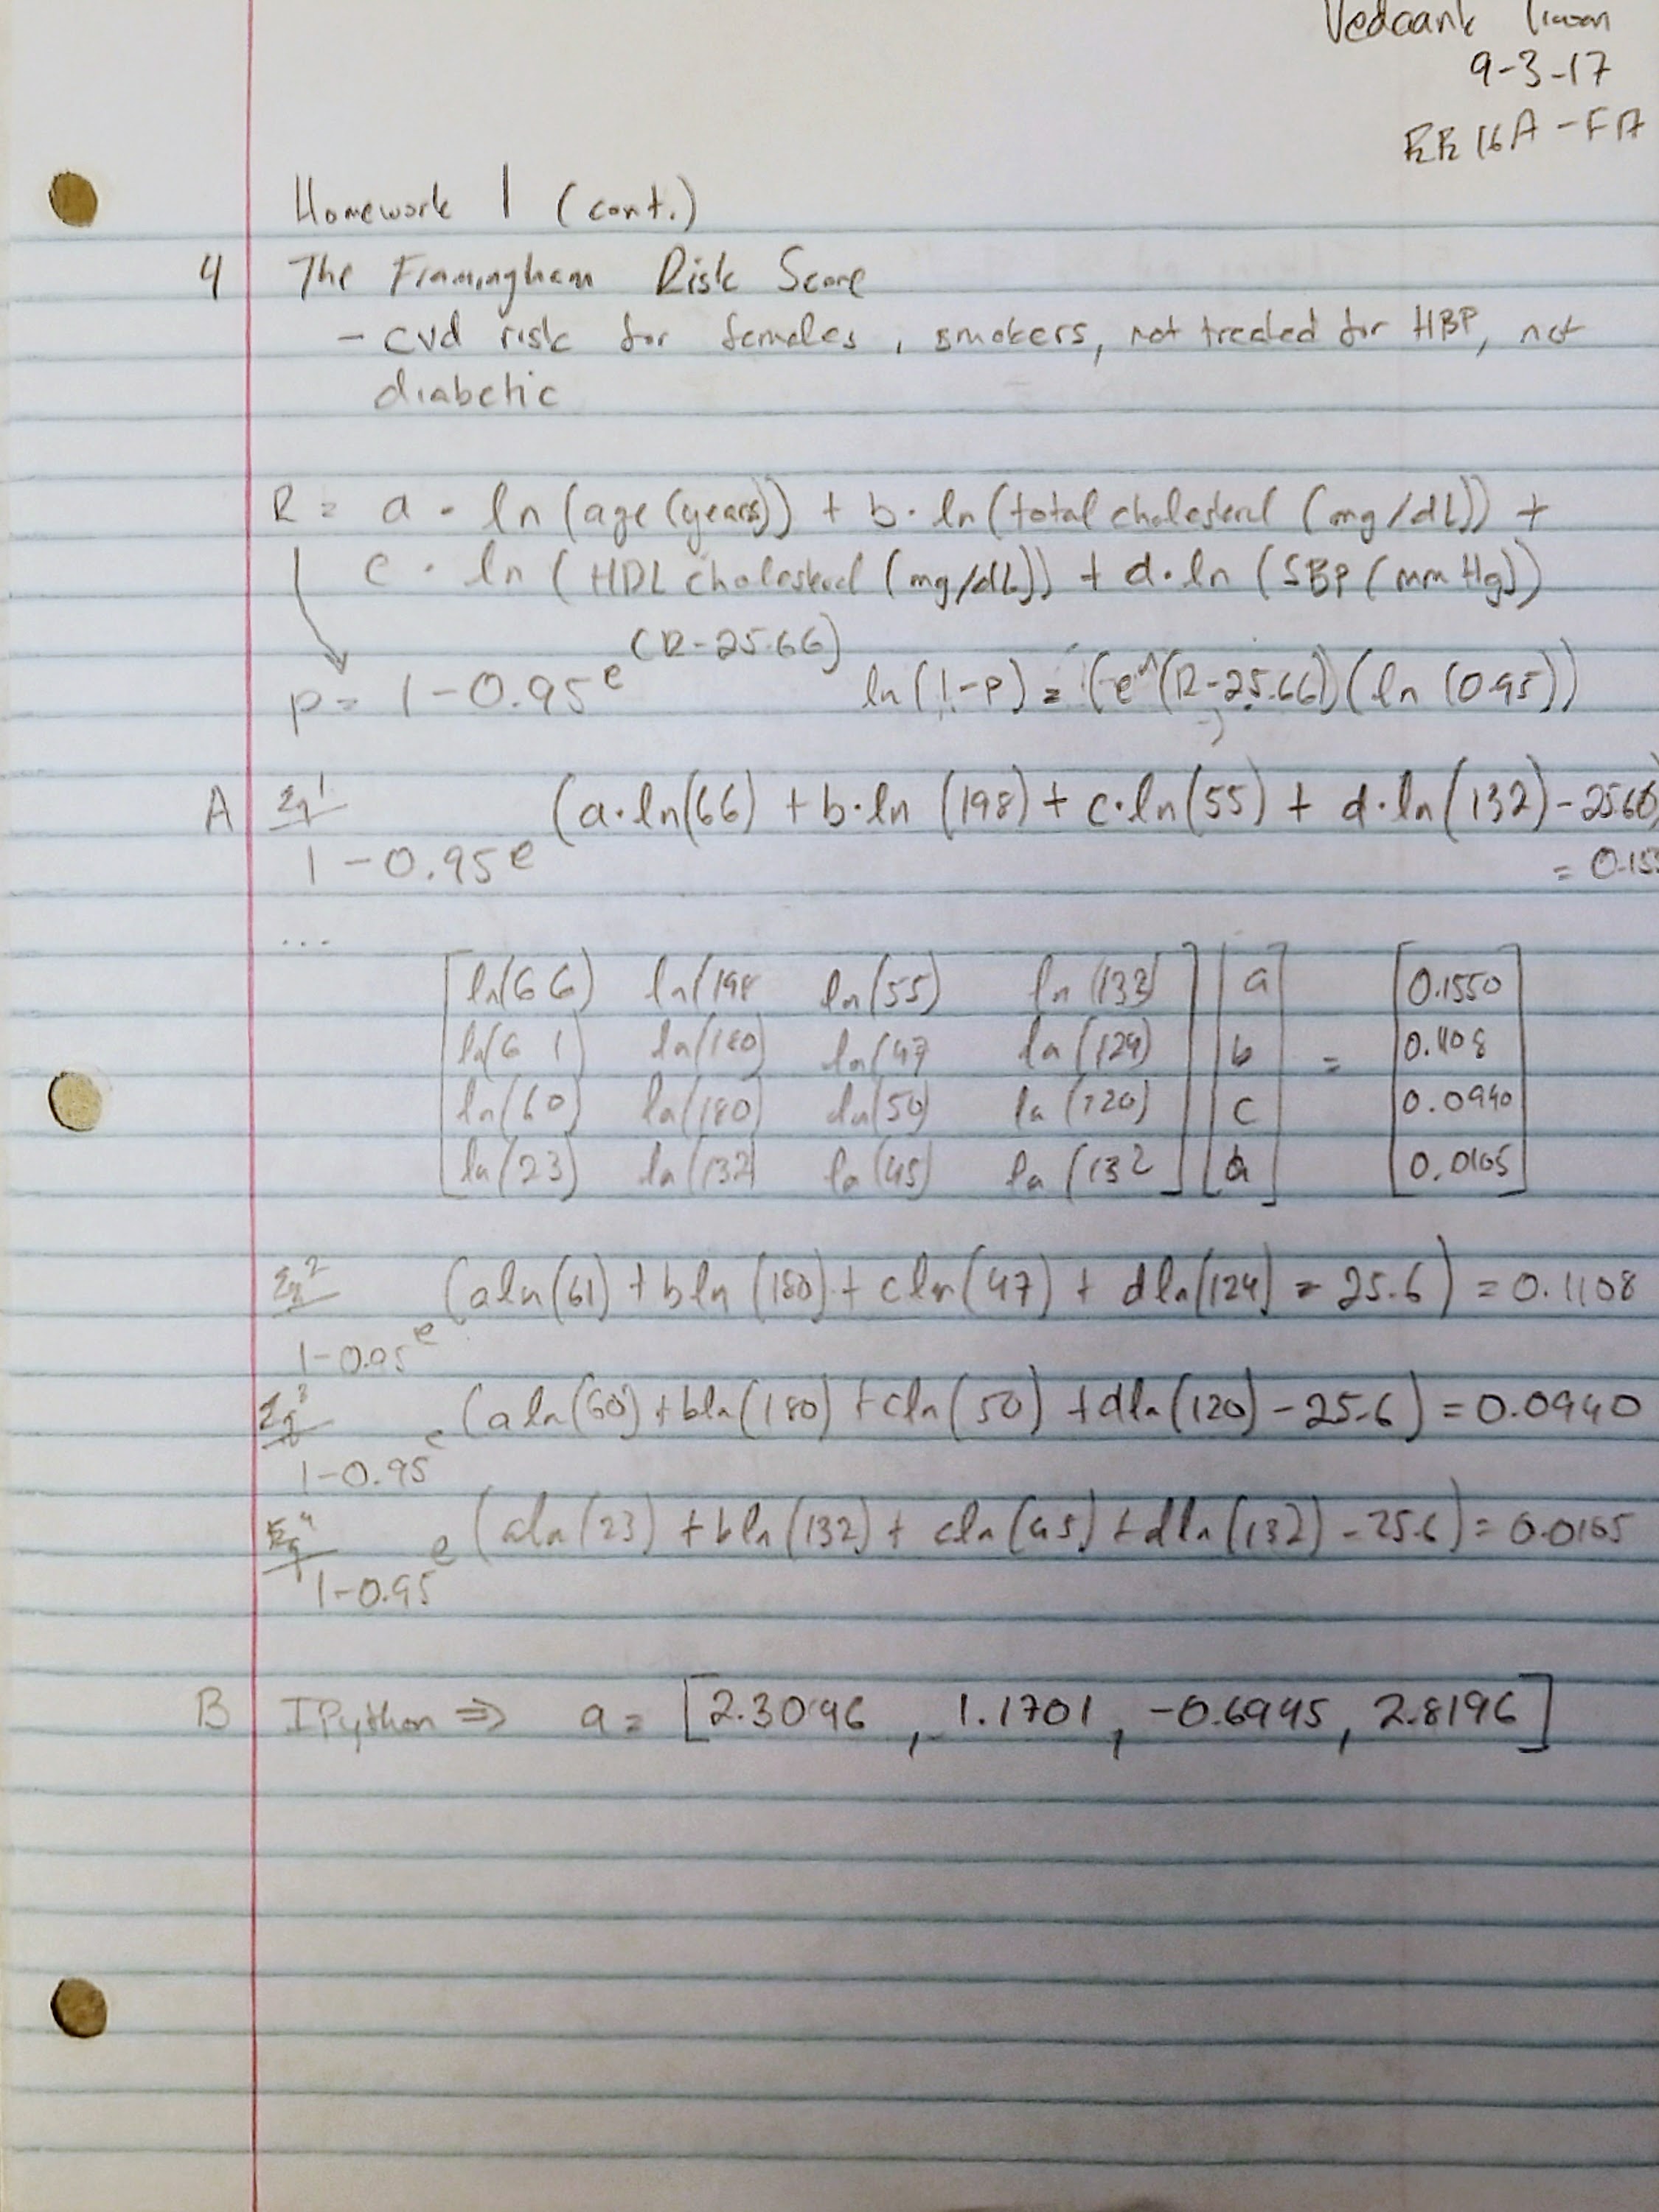 Vedaank
9-3-17
EE 16A - FA
Homework 1 (cont.)
4 The Framingham Risk Score
- cvd risk for females, smokers, not treated for HBP, not
diabetic
R = a · ln (age (years)) + b · ln (total cholesterol (mg/dL)) +
c · ln (HDL cholesterol (mg/dL)) + d · ln (SBP (mm Hg))
p = 1 - 0.95^e^(R-25.66) ln(1-p) = (e^(R-25.66)(ln (0.95))
A Eq 1 (a·ln(66) + b·ln (198) + c·ln(55) + d·ln(132) - 25.66)
1 - 0.95e = 0.155
...
[ln(66) ln(198 ln(55) ln(132)] [a] [0.1550]
ln(61) ln(180) ln(47 ln(124) b = 0.1108
ln(60) ln(180) ln(50) ln(120) c 0.0940
ln(23) ln(132) ln(45) ln(132 d 0.0165
Eq 2 (aln(61) + bln(180) + cln(47) + dln(124) - 25.6) = 0.1108
1-0.95e
Eq 3 (aln(60) + bln(180) + cln(50) + dln(120) - 25.6) = 0.0940
1-0.95e
Eq 4 (aln(23) + bln(132) + cln(45) + dln(132) - 25.6) = 0.0165
1-0.95e
B IPython ⇒ a = [2.3096, 1.1701, -0.6945, 2.8196]